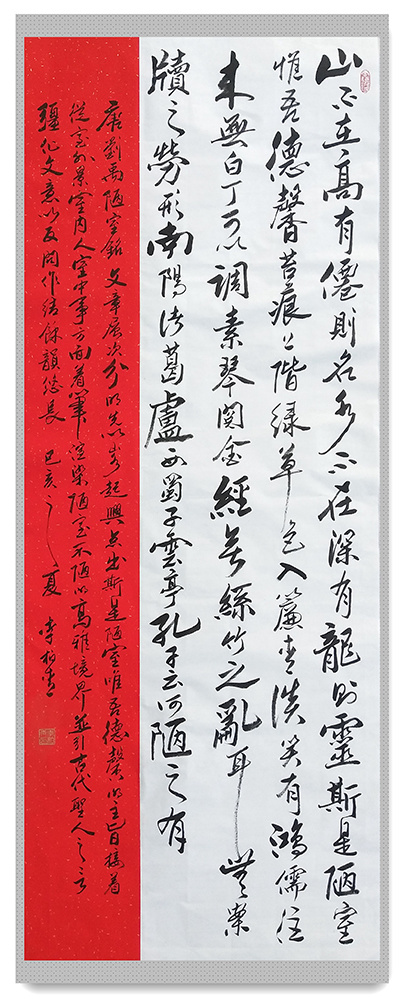 山不在高有僊則名水不在深有龍則靈斯是陋室
惟吾德馨苔痕上階緑草色入簾青談笑有鴻儒往
来無白丁可以調素琴閲金經無絲竹之亂耳無案
牘之勞形南陽诸葛盧西蜀子雲亭孔子云何陋之有
唐劉禹陋室銘文章層次分明先以起興点出斯是陋室唯吾德馨的主旨接着
從室外景室内人室中事方面着筆渲染陋室不陋的高雅境界並引古代聖人之言
强化文意以反问作结餘韻悠長 己亥之夏